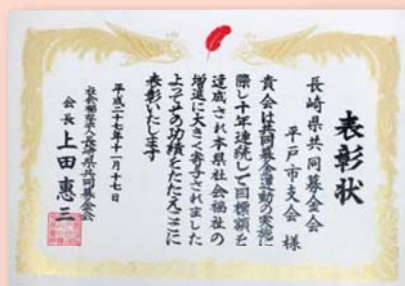 表彰状
長崎県共同募金会
平戸市支会 様
貴会は共同募金運動の実施に
際し十年連続して目標額を
達成され本県社会福祉の
増進に大きく寄与されました
よってその功績をたたえここに
表彰いたします
平成二十七年十一月十七日
社会福祉法人長崎県共同募金会
会長 上田惠三